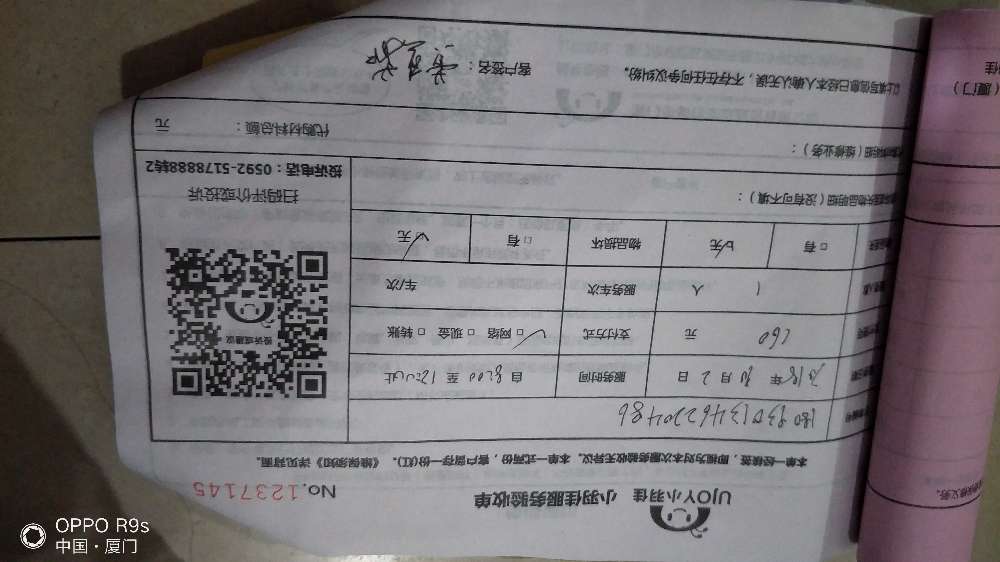 UJOY小羽佳 小羽佳服务验收单
No.1237145
本单一经接签，即视为对本次服务验收无异议。本单一式两份，客户留存一份(红)。《维保须知》详见背面。
服务时间 自8:00至12:00止
年10月2日
160 元
支付方式 ☑网络 □现金 □转账
1 人
服务车次 车/次
□有 ☑无
物品损坏 □有 ☑无
扫码评价或投诉
投诉电话：0592-5178888转2
投诉或建议
物品明细（没有可不填）：
明细（维修业务）：
代购材料总额： 元
以上填写信息已经本人确认无误，不存在任何争议纠纷。
客户签名：
（厦门）
OPPO R9s
中国·厦门